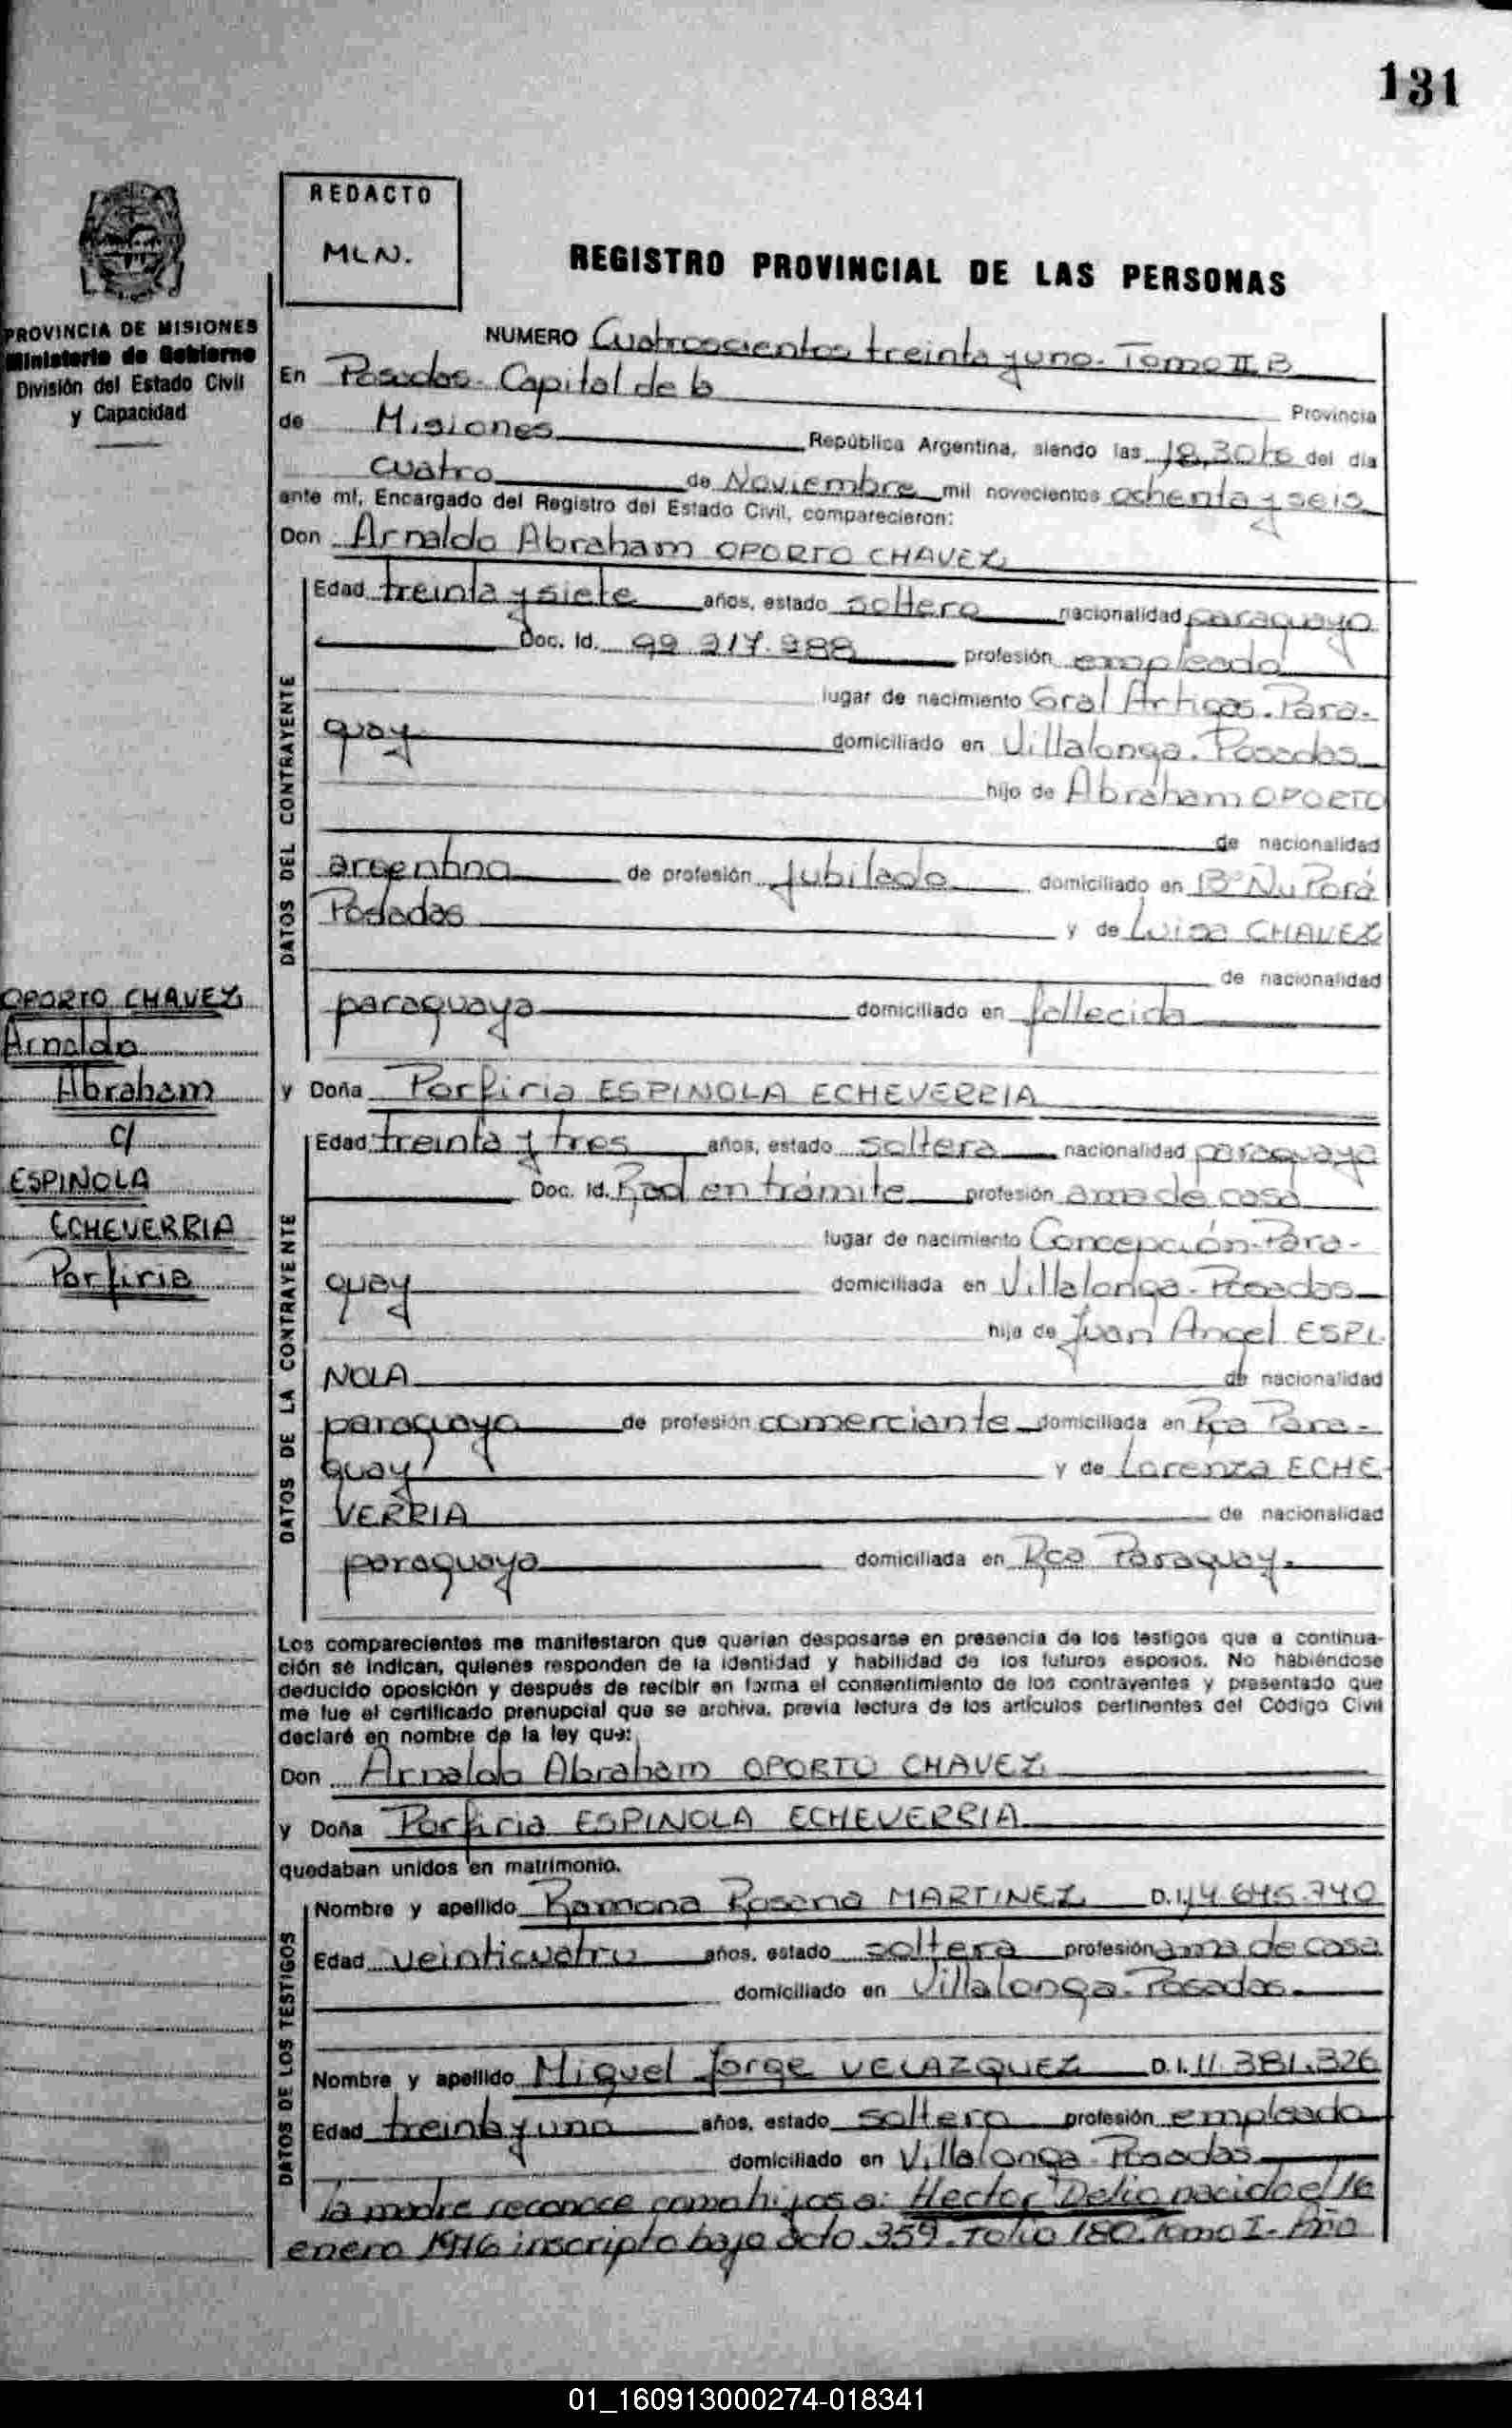 131
REDACTO
MLN.
REGISTRO PROVINCIAL DE LAS PERSONAS
PROVINCIA DE MISIONES
Ministerio de Gobierno
División del Estado Civil
y Capacidad
NUMERO Cuatroscientos treinta y uno. Tomo II B
En Posadas. Capital de la Provincia
de Misiones República Argentina, siendo las 18,30hs del día
cuatro de Noviembre mil novecientos ochenta y seis
ante mí, Encargado del Registro del Estado Civil, comparecieron:
Don Arnaldo Abraham OPORTO CHAVEZ
DATOS DEL CONTRAYENTE
Edad treinta y siete años, estado soltero nacionalidad paraguayo
Doc. Id. 99.217.988 profesión empleado
lugar de nacimiento Gral Artigas. Para-
guay domiciliado en Villalonga. Posadas
hijo de Abraham OPORTO
de nacionalidad
argentina de profesión jubilado domiciliado en Bº Ñu Porá
Posadas y de Luisa CHAVEZ
de nacionalidad
paraguaya domiciliado en fallecida
OPORTO CHAVEZ
Arnaldo
Abraham
c/
ESPINOLA
ECHEVERRIA
Porfiria
y Doña Porfiria ESPINOLA ECHEVERRIA
DATOS DE LA CONTRAYENTE
Edad treinta y tres años, estado soltera nacionalidad paraguaya
Doc. Id. Rad en trámite profesión ama de casa
lugar de nacimiento Concepción-Para-
guay domiciliada en Villalonga. Posadas
hija de Juan Angel ESPI
NOLA de nacionalidad
paraguaya de profesión comerciante domiciliada en Rca Para-
guay y de Lorenza ECHE
VERRIA de nacionalidad
paraguaya domiciliada en Rca Paraguay.
Los comparecientes me manifestaron que querían desposarse en presencia de los testigos que a continua-
ción se indican, quienes responden de la identidad y habilidad de los futuros esposos. No habiéndose
deducido oposición y después de recibir en forma el consentimiento de los contrayentes y presentado que
me fue el certificado prenupcial que se archiva, previa lectura de los artículos pertinentes del Código Civil
declaré en nombre de la ley que:
Don Arnaldo Abraham OPORTO CHAVEZ
y Doña Porfiria ESPINOLA ECHEVERRIA
quedaban unidos en matrimonio.
DATOS DE LOS TESTIGOS
Nombre y apellido Ramona Rosana MARTINEZ D.I. 14.645.740
Edad veinticuatro años, estado soltera profesión ama de casa
domiciliado en Villalonga. Posadas.
Nombre y apellido Miguel Jorge VELAZQUEZ D.I. 11.381.326
Edad treinta y uno años, estado soltero profesión empleado
domiciliado en Villalonga Posadas
la madre reconoce como hijos a: Hector Delio nacido el 16
enero 1976 inscripto bajo acta 359. Folio 180. Tomo I- Año
01_160913000274-018341